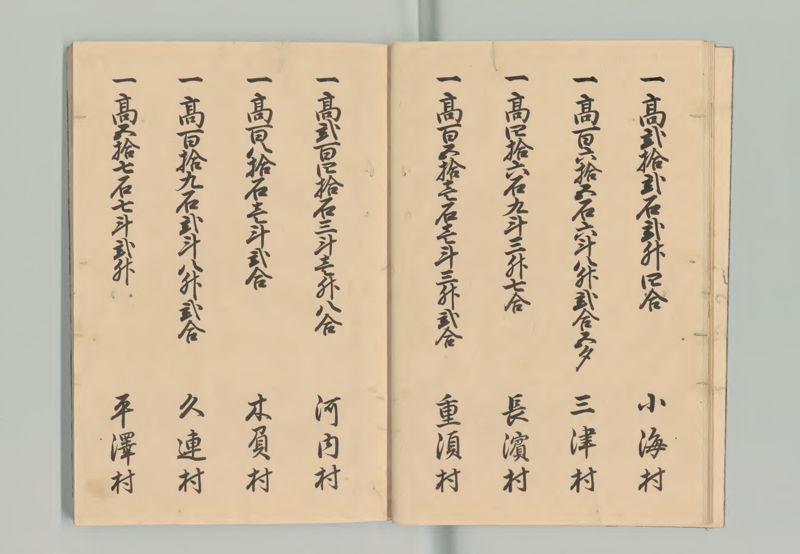 一高弐拾弐石弐升四合 小海村
一高百六拾五石六斗八升弐合五夕 三津村
一高四拾六石九斗三升七合 長濱村
一高百五拾壱石壱斗三升弐合 重須村
一高弐百四拾石三斗壱升八合 河内村
一高百八拾石壱斗弐合 木負村
一高百拾九石弐斗八升弐合 久連村
一高五拾七石七斗弐升 平澤村